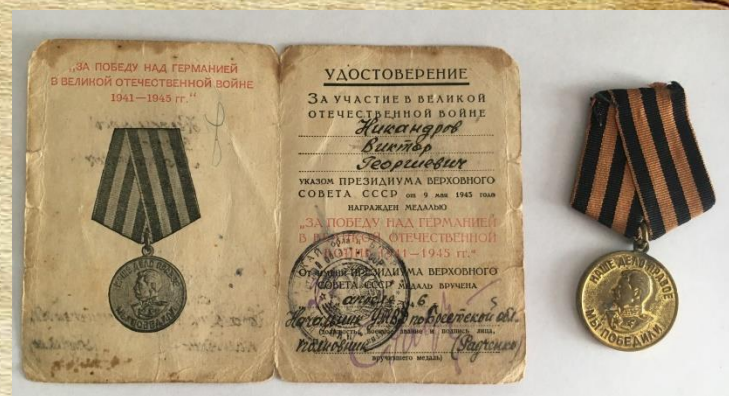 „ЗА ПОБЕДУ НАД ГЕРМАНИЕЙ
В ВЕЛИКОЙ ОТЕЧЕСТВЕННОЙ ВОЙНЕ
1941—1945 гг.“
НАШЕ ДЕЛО ПРАВОЕ
МЫ ПОБЕДИЛИ
УДОСТОВЕРЕНИЕ
ЗА УЧАСТИЕ В ВЕЛИКОЙ
ОТЕЧЕСТВЕННОЙ ВОЙНЕ
Никандров
Виктор
Георгиевич
УКАЗОМ ПРЕЗИДИУМА ВЕРХОВНОГО
СОВЕТА СССР от 9 мая 1945 года
НАГРАЖДЕН МЕДАЛЬЮ
„ЗА ПОБЕДУ НАД ГЕРМАНИЕЙ
В ВЕЛИКОЙ ОТЕЧЕСТВЕННОЙ
ВОЙНЕ 1941—1945 гг.“
От имени ПРЕЗИДИУМА ВЕРХОВНОГО
СОВЕТА СССР МЕДАЛЬ ВРУЧЕНА
апреля 6
Начальник по Брестской обл.
воинское звание и подпись лица,
полковник (Радченко)
вручившего медаль)
НАШЕ ДЕЛО ПРАВОЕ
МЫ ПОБЕДИЛИ